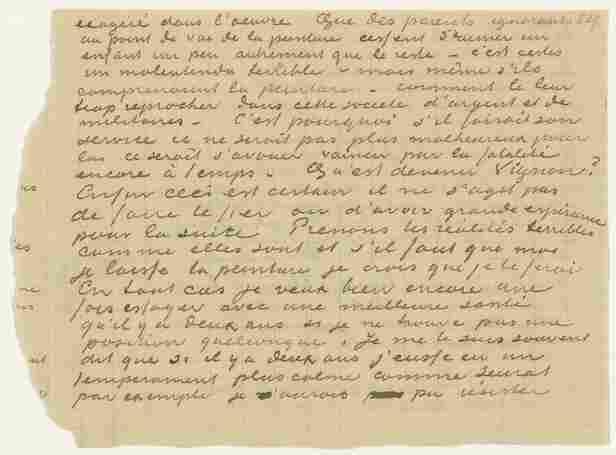 exageré dans l'oeuvre Que des parents ignorants
au point de vue de la peinture cessent d'aimer un
enfant un peu autrement que le reste – c'est certes
un malentendu terrible – mais même s'ils
comprenaient la peinture – comment le leur
trop reprocher dans cette société d'argent et de
militaires – C'est pourquoi s'il faisait son
service ce ne serait pas plus malheureux pour
lui ce serait s'avouer vaincu par la fatalité
encore à temps. Qu'est devenu Vignon?
Enfin ceci est certain il ne s'agit pas
de faire le fier ou d'avoir grande espérance
pour la suite Prenons les réalités terribles
comme elles sont et s'il faut que moi
je laisse la peinture je crois que je le ferai
En tout cas je veux bien encore une
fois essayer avec une meilleure santé
qu'il y a deux ans si je ne trouve pas une
position quelconque. Je me le suis souvent
dit que si il y a deux ans j'eusse eu un
temperament plus calme comme Seurat
par exemple j'aurais pu résister